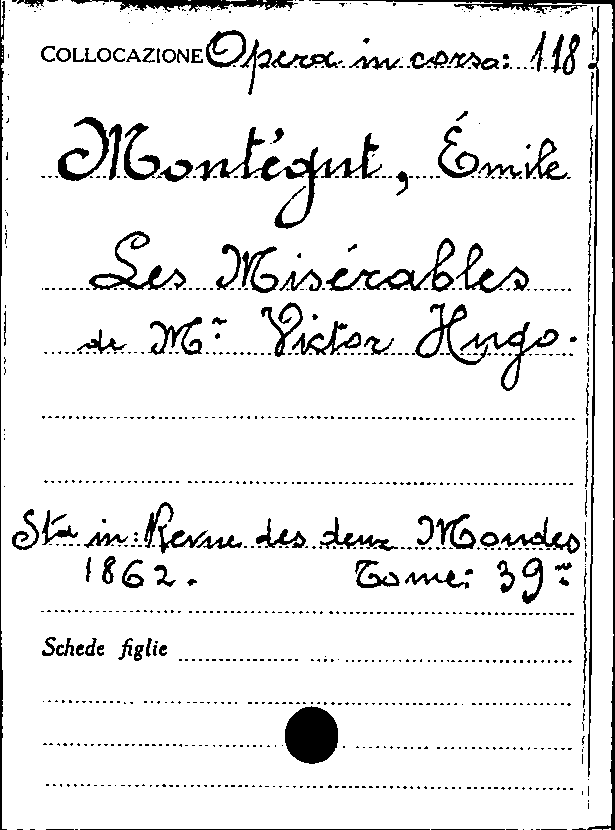 COLLOCAZIONE Opera in corso: 118.
Montégut, Émile
Les Misérables
de M.r Victor Hugo.
Sta in: Revue des deux Mondes
1862. Tome: 39.me
Schede figlie